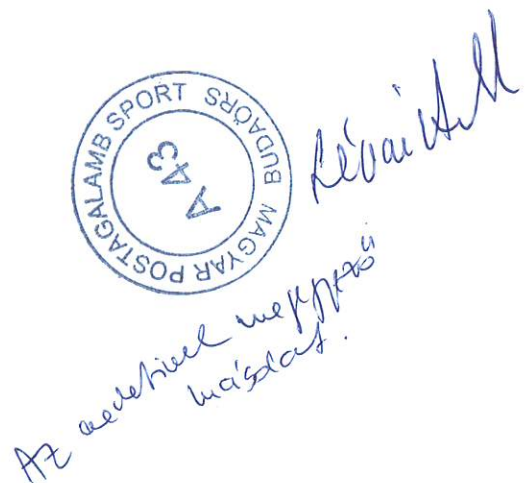 MAGYAR POSTAGALAMB SPORT
BUDAÖRS
A 43
Az eredetivel megegyező
másolat.